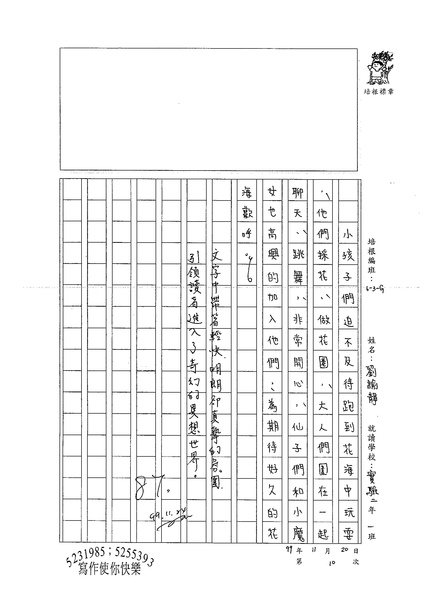 培根標章
培根編班：6-3-G 姓名：劉諭靜 就讀學校：實驗二年一班
小孩子們迫不及待跑到花海中玩耍
，他們採花、做花圈，大人們圍在一起
聊天、跳舞，非常開心，仙子們和小魔
女也高興的加入他們，為期待好久的花
海歡呼。
文字中帶著輕快、明朗卻真摯的氛圍。
引領讀者進入了奇幻的異想世界。
87.
99.11.24
99年11月20日
第10次
5231985；5255393
寫作使你快樂